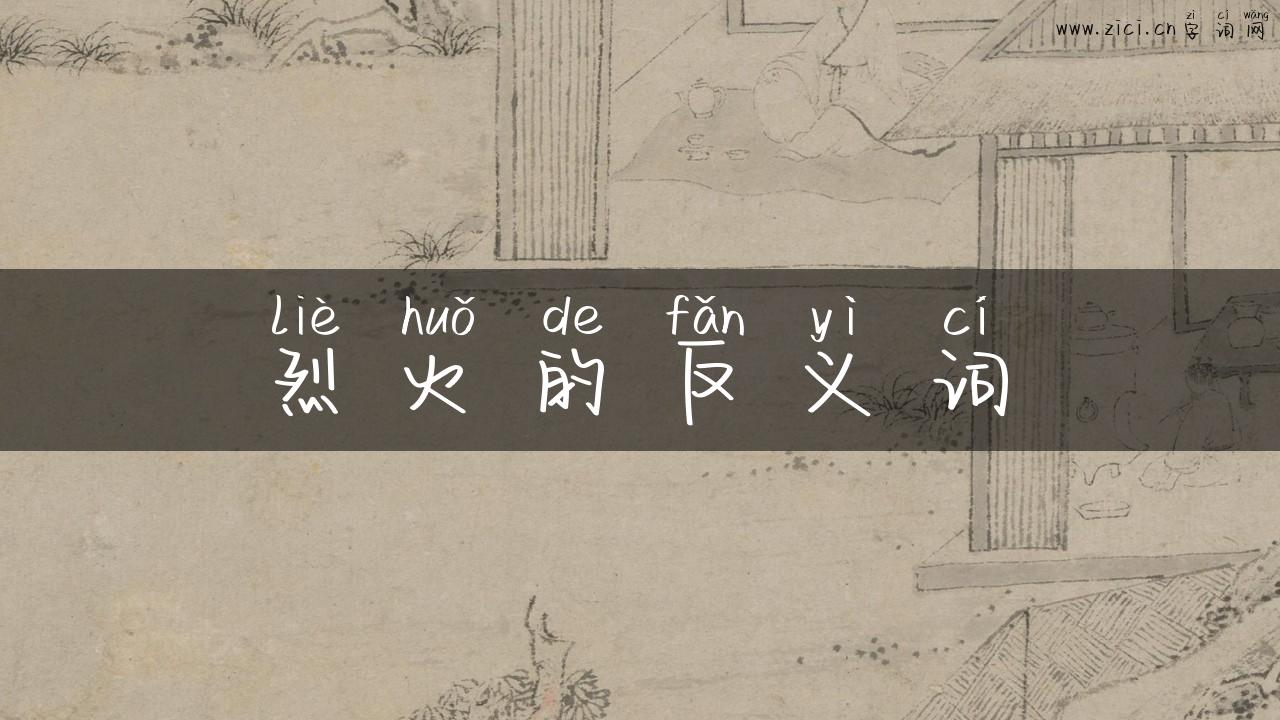 zì cí wǎng
www.zici.cn 字 词 网
liè huǒ de fǎn yì cí
烈 火 的 反 义 词